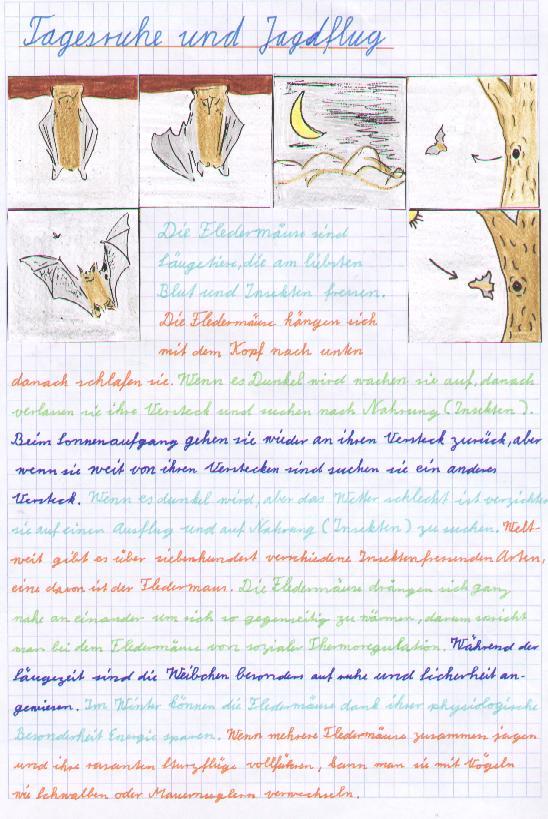 Tagesruhe und Jagdflug
Die Fledermäuse sind
Säugetiere, die am liebsten
Blut und Insekten fressen.
Die Fledermäuse hängen sich
mit dem Kopf nach unten
danach schlafen sie. Wenn es Dunkel wird wachen sie auf, danach
verlassen sie ihre Versteck und suchen nach Nahrung (Insekten).
Beim Sonnenaufgang gehen sie wieder an ihren Versteck zurück, aber
wenn sie weit von ihren Verstecken sind suchen sie ein anderes
Versteck. Wenn es dunkel wird, aber das Wetter schlecht ist verzichten
sie auf einen Ausflug und auf Nahrung (Insekten) zu suchen. Welt-
weit gibt es über siebenhundert verschiedene Insektenfressenden Arten,
eine davon ist der Fledermaus. Die Fledermäuse drängen sich ganz
nahe an einander um sich so gegenseitig zu wärmen, darum spricht
man bei dem Fledermäuse von sozialer Thermoregulation. Während der
Säugezeit sind die Weibchen besonders auf ruhe und Sicherheit an-
gewiesen. Im Winter können die Fledermäuse dank ihrer physiologische
Besonderheit Energie sparen. Wenn mehrere Fledermäuse zusammen jagen
und ihre rasanten Sturzflüge vollführen, kann man sie mit Vögeln
wie Schwalben oder Mauerseglern verwechseln.